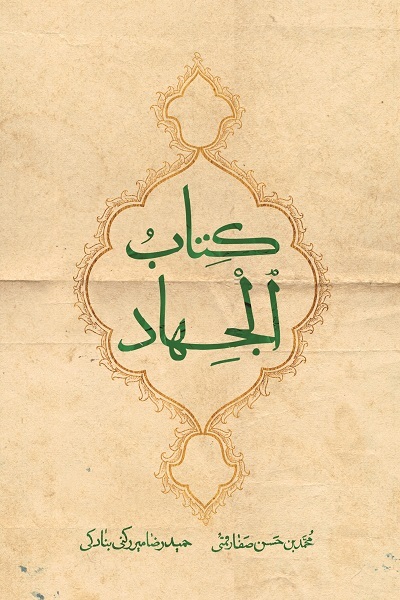 كِتابُ
ٱلْجِهاد
محمّد بن حسن صفار قمی حمیدرضا میررکنی بنادکی